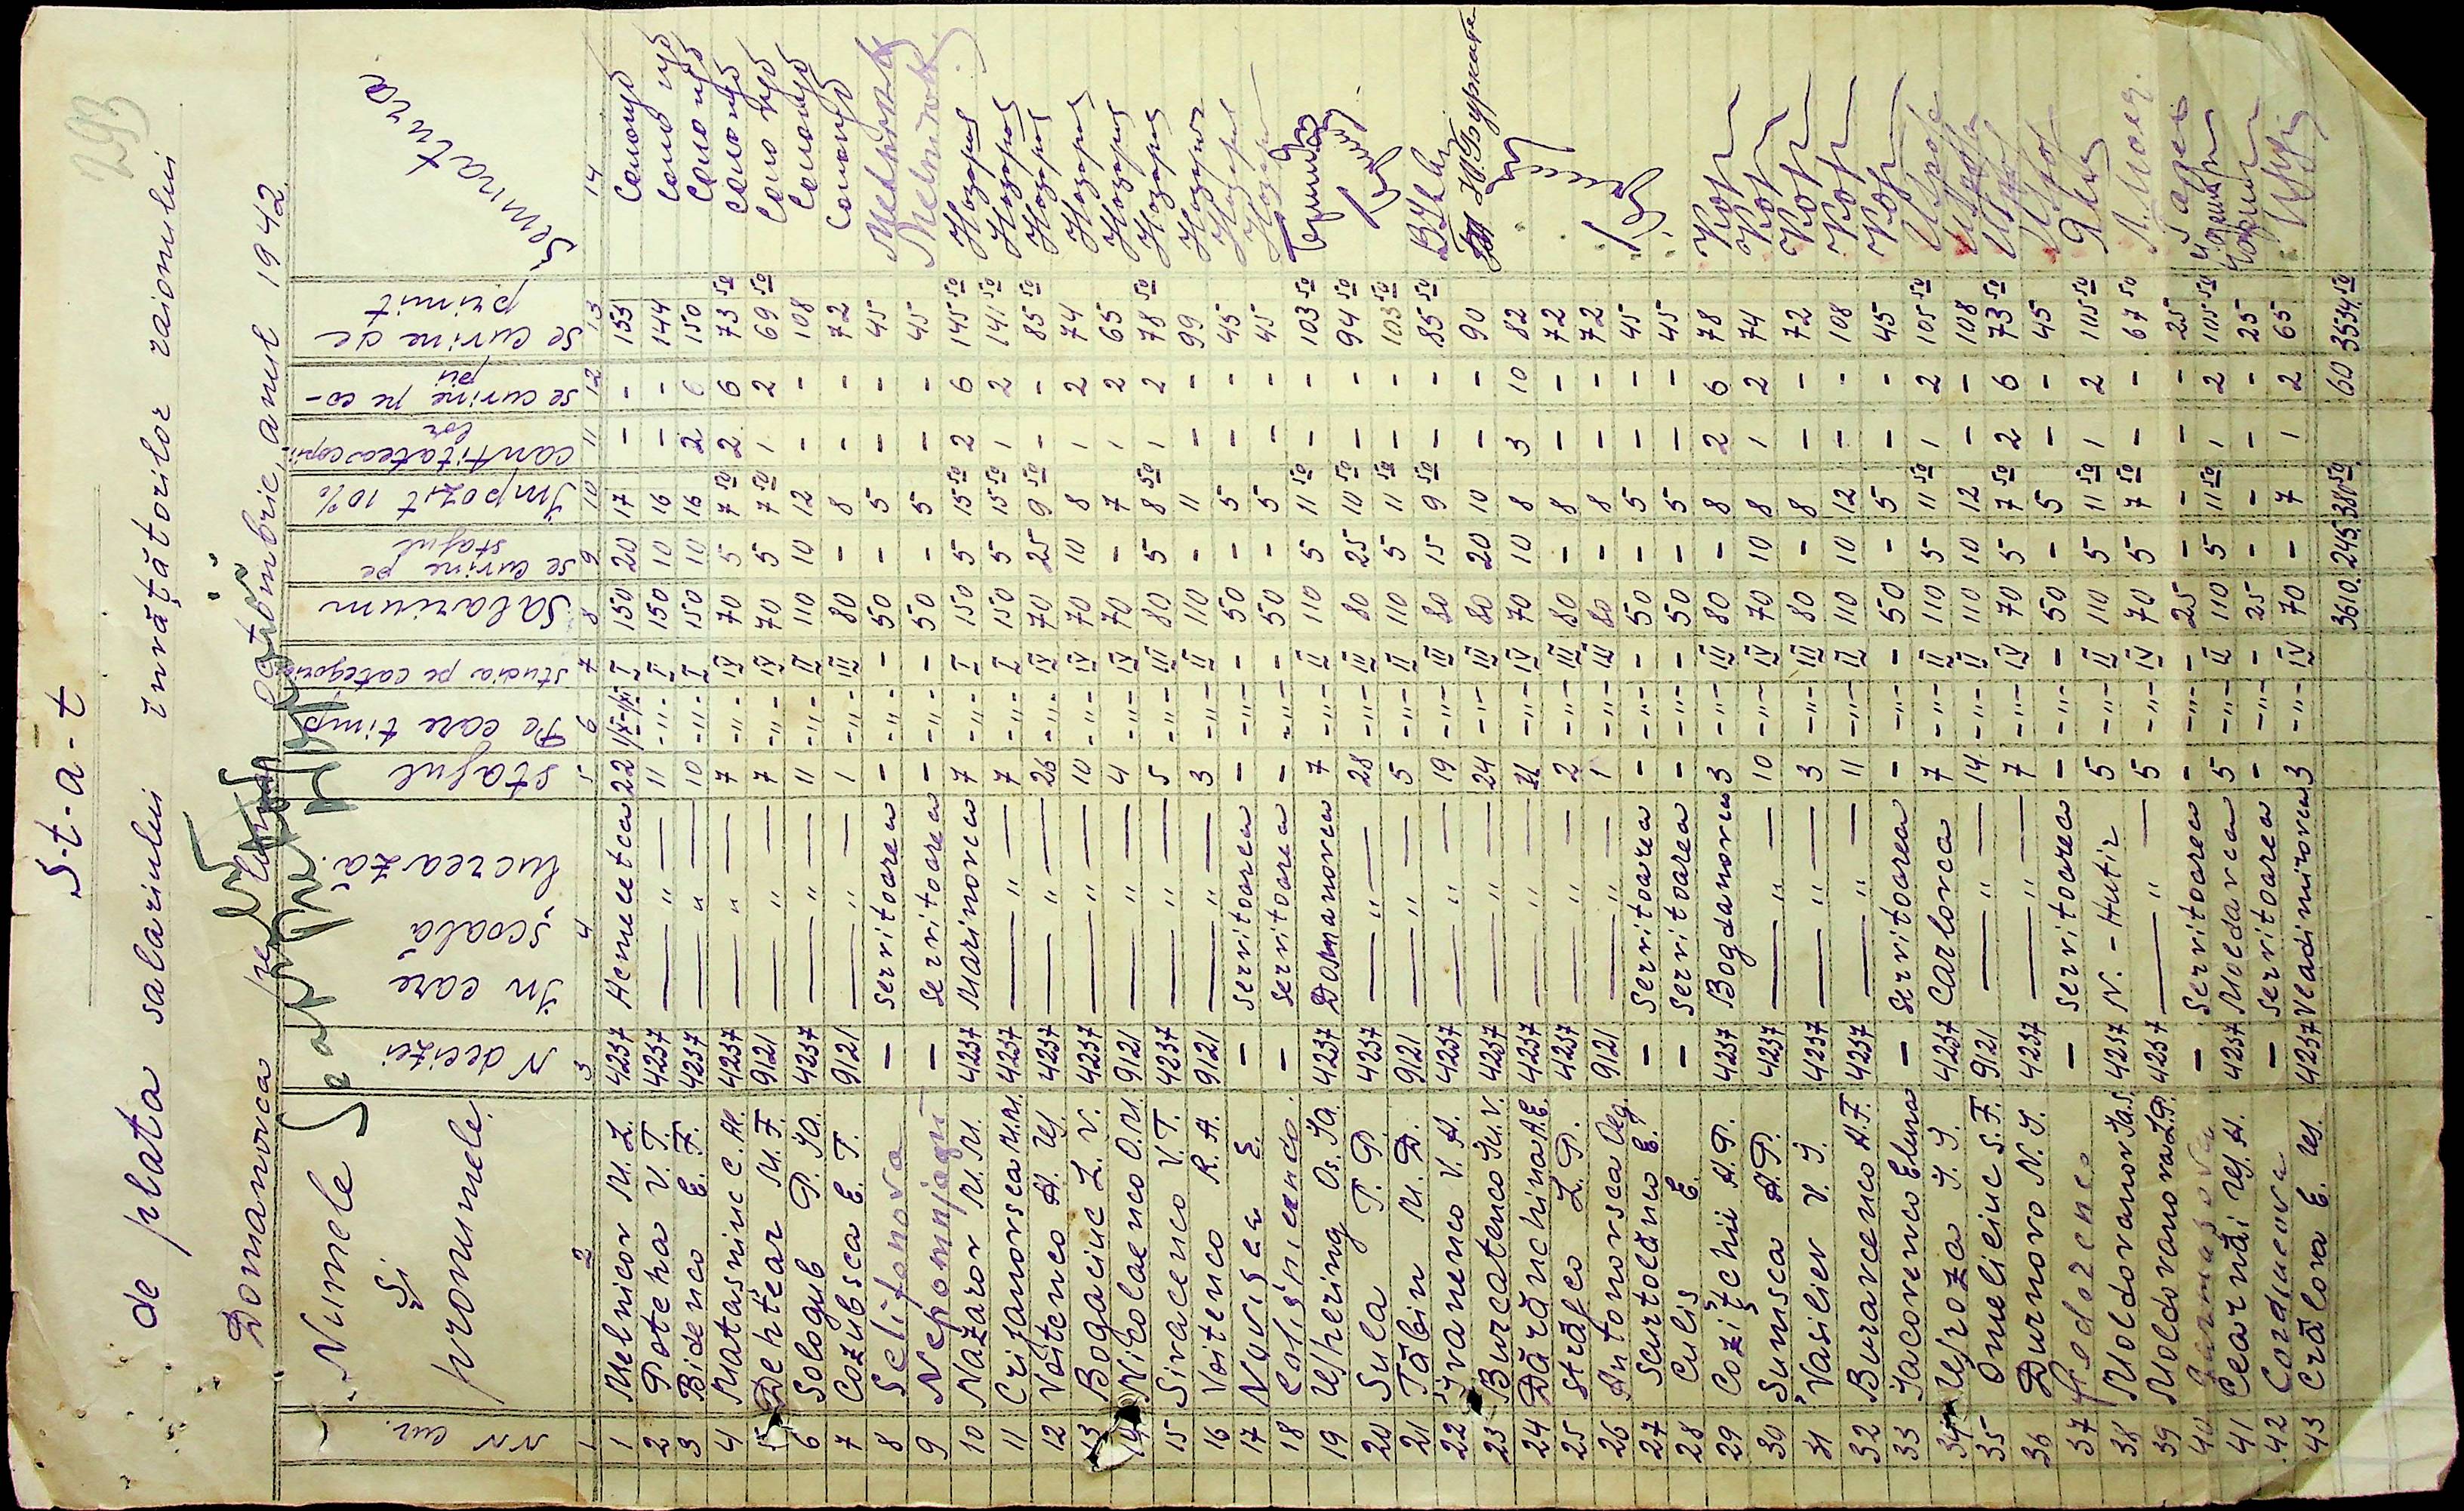 293
S-t-a-t
de plata salariului învăţătorilor raionului
Domanovca pe luna Octombrie, anul 1942.
NN cur. | Numele şi pronumele. | N decizei | În care şcoală lucrează. | stajul | Pe care timp | studia pe categorie | Salarium | se cuvine pe stajul | Impozit 10% | cantitatea copiilor | se cuvine pe copii | Se cuvine de primit | Semnatura
1 | 2 | 3 | 4 | 5 | 6 | 7 | 8 | 9 | 10 | 11 | 12 | 13 | 14
1 Melnicov M. L. 4237 Acmecetca 22 I 150 20 17 - - 153
2 Poteha V. T. 4237 — " — 11 -"- I 150 10 16 - - 144
3 Bidenco E. F. 4237 — " — 10 -"- I 150 10 16 2 6 150
4 Matasniuc C. Al. 4237 — " — 7 -"- IV 70 5 7 50 2 6 73 50
5 Dehtear M. F. 9121 — " — 7 -"- IV 70 5 7 50 1 2 69 50
6 Sologub P. Ia. 4237 — " — 11 -"- II 110 10 12 - - 108
7 Cozubsca E. T. 9121 — " — 1 -"- III 80 - 8 - - 72
8 Selifonova - servitoarea - -"- - 50 - 5 - - 45
9 Nepomnjaşii - servitoarea - -"- - 50 - 5 - - 45
10 Nazarov M. M. 4237 Marinovca 7 -"- I 150 5 15 50 2 6 145 50
11 Crijanovsca M. M. 4237 — " — 7 -"- I 150 5 15 50 1 2 141 50
12 Voitenco A. 4237 — " — 26 -"- IV 70 25 9 50 - - 85 50
13 Bogaciuc L. V. 4237 — " — 10 -"- IV 70 10 8 1 2 74
14 Nicolaenco O. M. 9121 — " — 4 -"- IV 70 - 7 1 2 65
15 Sivacenco V. T. 4237 — " — 5 -"- III 80 5 8 50 1 2 78 50
16 Voitenco R. A. 9121 — " — 3 -"- II 110 - 11 - - 99
17 - servitoarea - -"- - 50 - 5 - - 45
18 - servitoarea - -"- - 50 - 5 - - 45
19 Os. Ia. 4237 Domanovca 7 -"- II 110 5 11 50 - - 103 50
20 Sula T. P. 4237 — " — 28 -"- III 80 25 10 50 - - 94 50
21 Tăbin M. D. 9121 — " — 5 -"- II 110 5 11 50 - - 103 50
22 Ivanenco V. A. 4237 — " — 19 -"- III 80 15 9 50 - - 85 50
23 Burcatenco Iu. V. 4237 — " — 24 -"- III 80 20 10 - - 90
24 Dărănchina A. E. 4237 — " — -"- IV 70 10 8 3 10 82
25 Străfco L. P. 4237 — " — 2 -"- III 80 - 8 - - 72
26 Antonovsca Olg. 9121 — " — 1 -"- III 80 - 8 - - 72
27 Scurtolănco E. - Servitoarea - -"- - 50 - 5 - - 45
28 Culis E. - Servitoarea - -"- - 50 - 5 - - 45
29 Coziţchii A. P. 4237 Bogdanovca 3 -"- III 80 - 8 2 6 78
30 Sumsca A. P. 4237 — " — 10 -"- IV 70 10 8 1 2 74
31 Vasiliev V. I. 4237 — " — 3 -"- III 80 - 8 - - 72
32 Buravcenco A. F. 4237 — " — 11 -"- II 110 10 12 - - 108
33 Iacovenco Elena - servitoarea - -"- - 50 - 5 - - 45
34 I. I. 4237 Carlovca 7 -"- II 110 5 11 50 1 2 105 50
35 Omeliciuc S. F. 9121 — " — 14 -"- II 110 10 12 - - 108
36 Durnovo N. I. 4237 — " — 7 -"- IV 70 5 7 50 2 6 73 50
37 - servitoarea - -"- - 50 - 5 - - 45
38 Moldovanov Ia. S. 4237 N.-Hutir 5 -"- II 110 5 11 50 1 2 105 50
39 Moldovanova L. P. 4237 — " — 5 -"- IV 70 5 7 50 - - 67 50
40 - Servitoarea - -"- - 25 - - - - 25
41 Cearnăi A. 4237 Moldavca 5 -"- II 110 5 11 50 1 2 105 50
42 - servitoarea - -"- - 25 - - - - 25
43 Crălova E. 4237 Vladimirovca 3 -"- IV 70 - 7 1 2 65
3610. 245. 381 50 60 3534 50